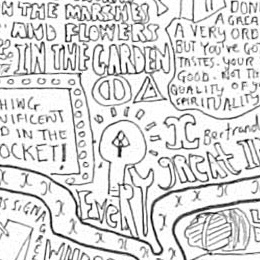 IN THE MARSHES
AND FLOWERS
IN THE GARDEN
A GREA
A VERY ORD
BUT YOU'VE GO
TASTES. YOUR
GOOD. NOT TH
QUALITY OF Y
SPIRITUALITY
HING
NIFICENT
D IN THE
OCKET!
I
Bertrand
GREAT I
EVERY
IS SIGN